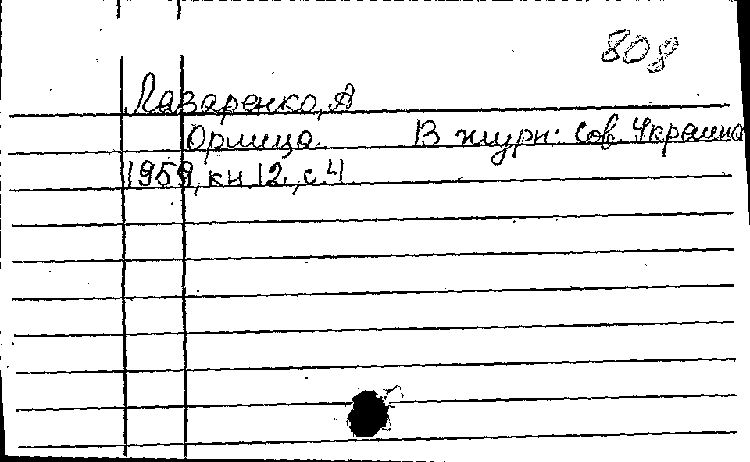 808
Лазаренко, А
Орлица. В журн: Сов. Украина
1959, кн 12, с. 4